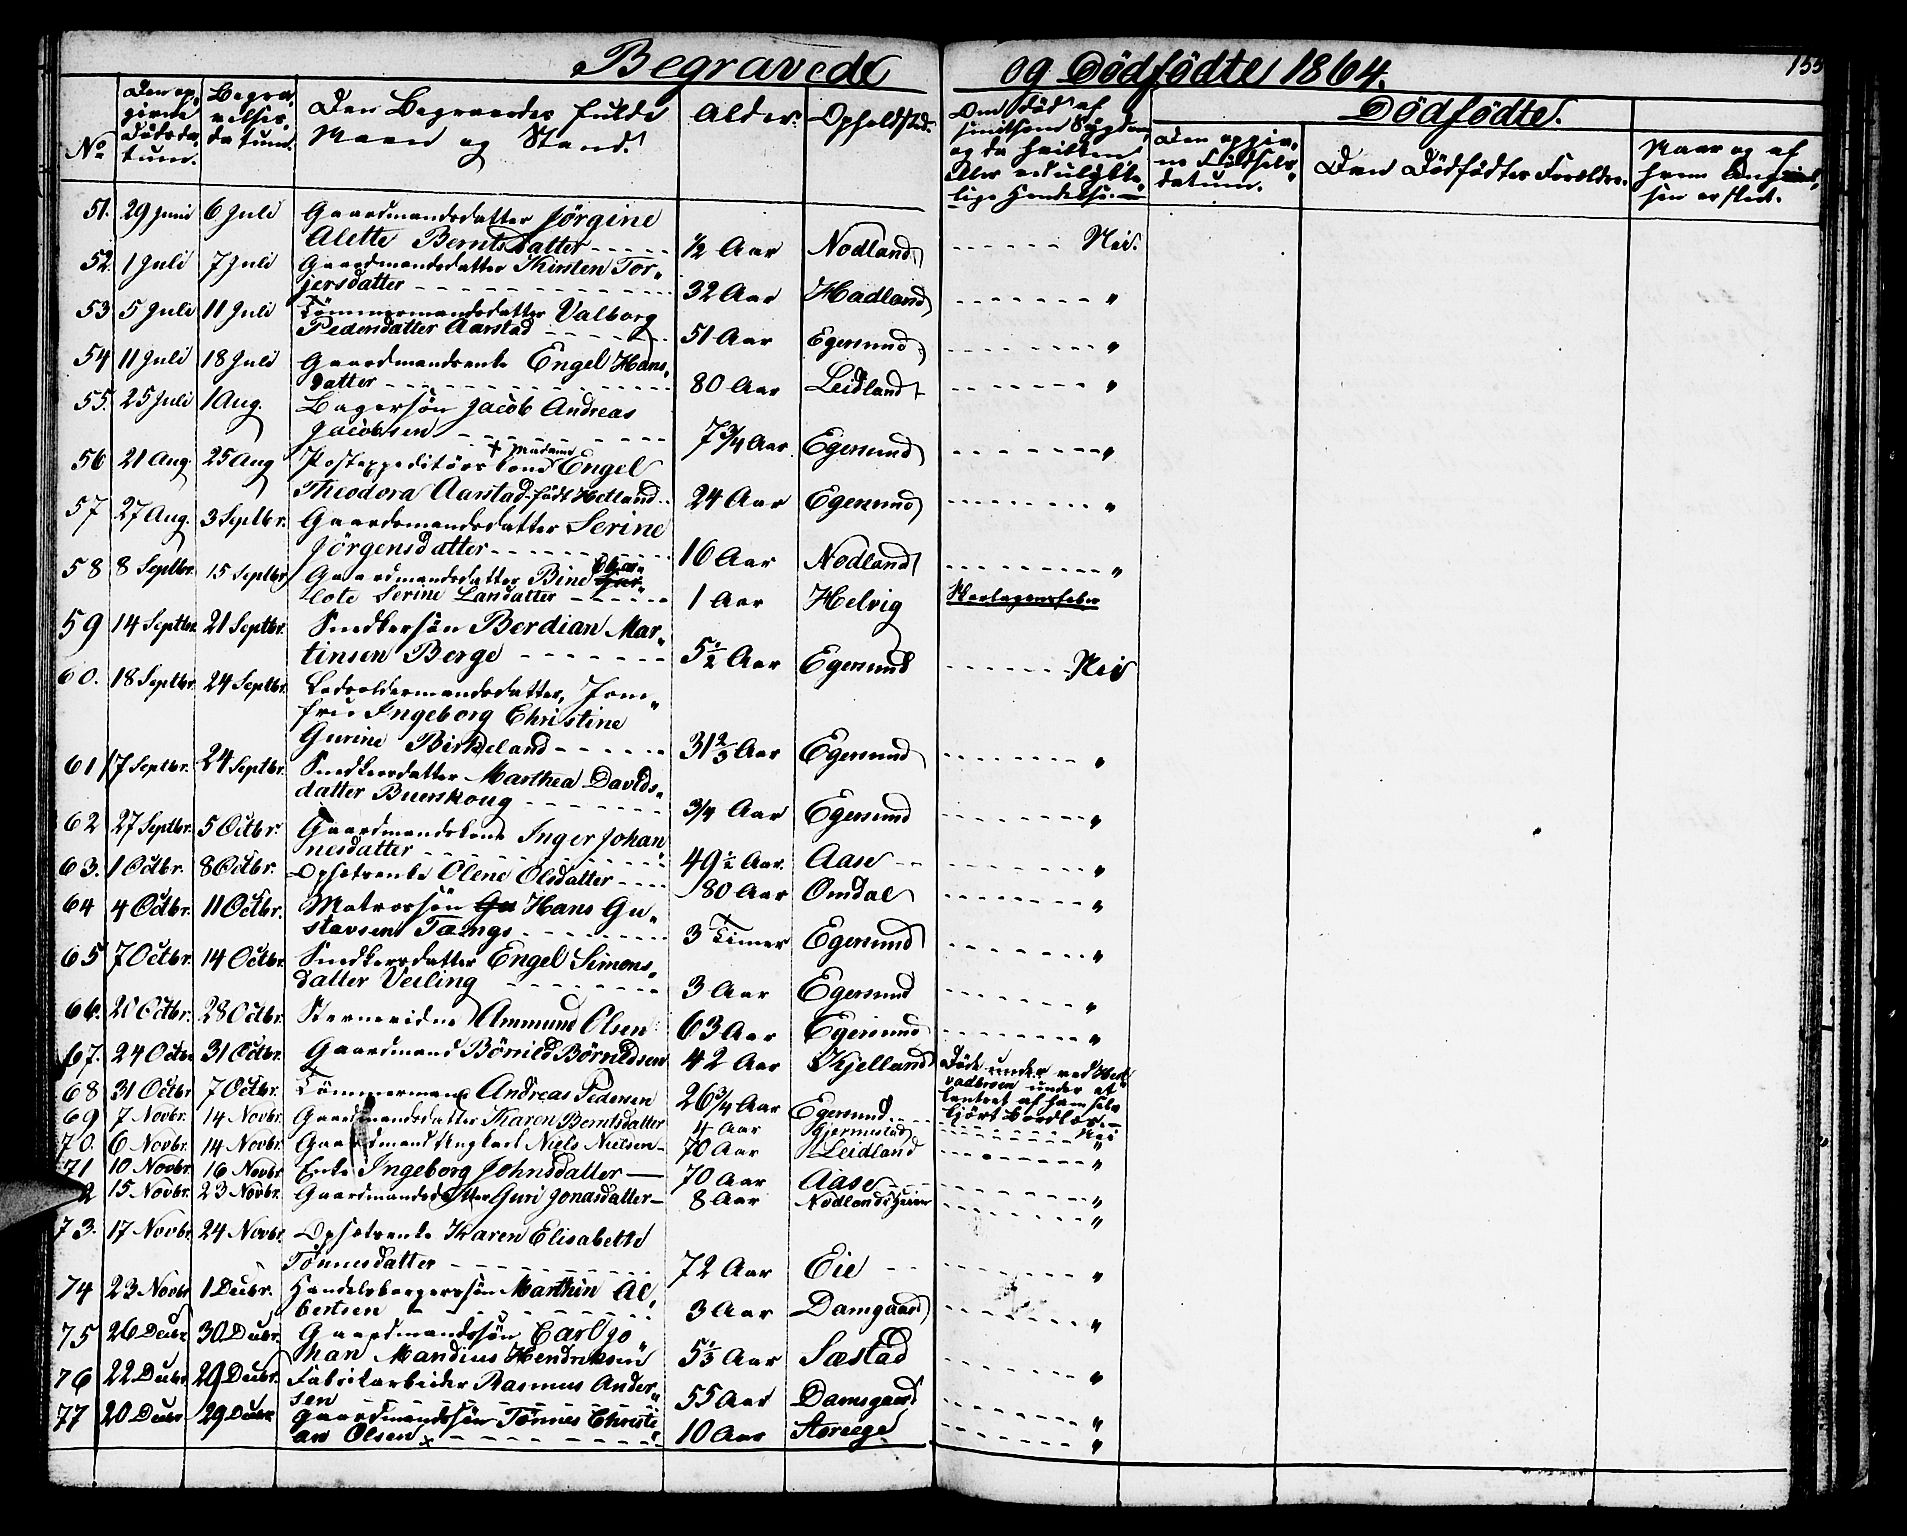 Begravede og Dödfödte 1864.
155
No
Den op-
givne
Dödsda-
tum.
Begra-
velses-
datum.
Den Begravedes fulde
Navn og Stand.
Alder.
Opholdssted.
Om Död af
smitsom Sygdom,
og da hvilken.
Eller ved ulykke-
lige Hendelse.
Dödfödte.
Den opgiv-
ne Födsels-
datum.
Den Dödfödtes Foreldre.
Naar og af
hvem Anmel-
sen er skeet.
51. 29 Juni 6 Juli Gaardmandsdatter Jörgine
Alette Berntsdatter - - - - - ½ Aar Nodland - - - - - - Nei.
52. 1 Juli 7 Juli Gaardmandsdatter Kirsten Tor-
jersdatter - - - - - 32 Aar Hadland - - - - - - "
53 5 Juli 11 Juli Tömmermandsdatter Valborg
Pedersdatter Aarstad - - - - - 51 Aar Egersund - - - - - - "
54 11 Juli 18 Juli Gaardmandsenke Engel Hans-
datter - - - - - 80 Aar Leidland - - - - - - "
55. 25 Juli 1 Aug. Bagersön Jacob Andreas
Jacobsen - - - - - 7¾ Aar Egersund - - - - - - "
56 21 Aug. 25 Aug + Madame
Postexpeditörskone Engel
Theodora Aarstad födt Hetland 24 Aar Egersund - - - - - - "
57 27 Aug. 3 Septbr. Gaardmandsdatter Serine
Jörgensdatter - - - - - 16 Aar Nodland - - - - - - "
58 8 Septbr. 15 Septbr Gaardmandsdatter Bine Char-
lote Serine Larsdatter - - - - - 1 Aar Helvig Skarlagensfeber
59 14 Septbr. 21 Septbr. Snedkersön Berdian Mar-
tinsen Berge - - - - - 5½ Aar Egersund - - - - - - Nei
60. 18 Septbr. 24 Septbr. Jom-
fru Ingeborg Christine
Gurine Birkeland - - - - - 31⅔ Aar Egersund - - - - - - "
61 17 Septbr. 24 Septbr. Snedkersdatter Marthea Davids-
datter Buerskoug - - - - - 3/4 Aar Egersund - - - - - - "
62 27 Septbr. 5 Octbr. Gaardmandskone Inger Johan-
nesdatter - - - - - 49½ Aar. Aase - - - - - - "
63. 1 Octbr. 8 Octbr. Opsetenke Olene Olsdatter - - - - 80 Aar Omdal - - - - - - "
64 4 Octbr. 11 Octbr. Matrossön Gu Hans Gu-
stavsen Tængs - - - - - 3 Timer Egersund - - - - - - "
65 7 Octbr. 14 Octbr. Snedkersdatter Engel Simons-
datter Veiling - - - - - 3 Aar Egersund - - - - - - "
66. 20 Octbr. 28 Octbr. Ammund Olsen 63 Aar Egersund - - - - - - "
67. 24 Octbr 31 Octbr. Gaardmand Börild Börildsen 42 Aar Kjelland Döde under
68 31 Octbr 7 Octbr. Tömmermand Andreas Pedersen 26¾ Aar Egersund
69 7 Novbr. 14 Novbr. Gaardmandsdatter Karen Berntsdatter 4 Aar Gjermestad - - - - - - Nei
70. 6 Novbr. 14 Novbr. Gaardmand Niels Nielsen 70 Aar Leidland - - - - - - "
71 10 Novbr. 16 Novbr Enke Ingeborg Johnsdatter 70 Aar Aase - - - - - - "
2 15 Novbr. 23 Novbr. Gaardmandsdatter Guri Jonasdatter 8 Aar Nodlandsheien - - - - - - "
73. 17 Novbr 24 Novbr. Opsetenke Karen Elisabette
Tönnesdatter - - - - - 72 Aar Eie - - - - - - "
74 23 Novbr 1 Decbr. Handelsborgersön Marthin Al-
bertsen - - - - - 3 Aar Damgaard - - - - - - "
75 26 Decbr 30 Decbr. Gaardmandssön Carl Jo-
han Mandius Hendriksen 5⅓ Aar Sæstad - - - - - - "
76 22 Decbr 29 Decbr. Fabrikarbeider Rasmus Ander-
sen - - - - - 55 Aar Damsgaard - - - - - - "
77 20 Decbr 29 Decbr Gaardmandssön Tönnes Christi-
an Olsen - - - - - 10 Aar Aareege - - - - - - "